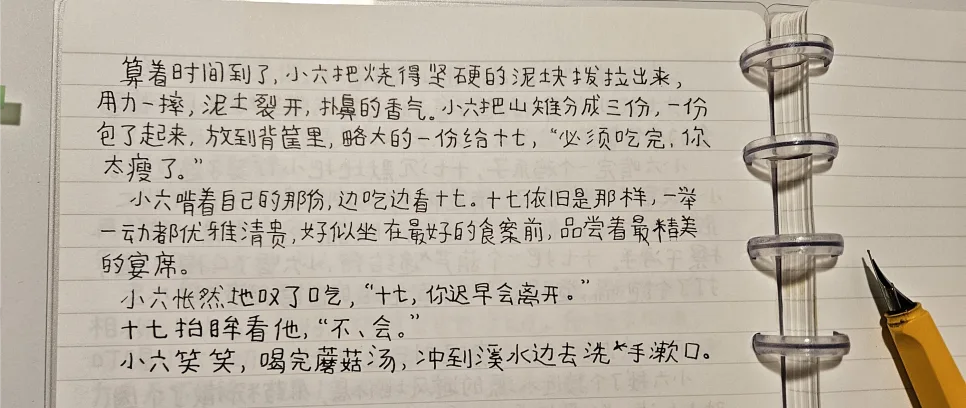 算着时间到了，小六把烧得坚硬的泥块拨拉出来，
用力一摔，泥土裂开，扑鼻的香气。小六把山雉分成三份，一份
包了起来，放到背筐里，略大的一份给十七，“必须吃完，你
太瘦了。”
小六啃着自己的那份，边吃边看十七。十七依旧是那样，一举
一动都优雅清贵，好似坐在最好的食案前，品尝着最精美
的宴席。
小六怅然地叹了口气，“十七，你迟早会离开。”
十七抬眸看他，“不、会。”
小六笑笑，喝完蘑菇汤，冲到溪水边去洗手漱口。